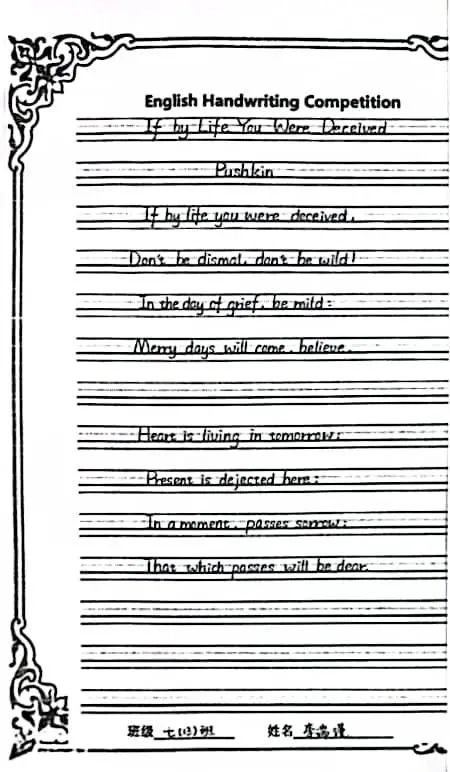 English Handwriting Competition
If by Life You Were Deceived
Pushkin
If by life you were deceived,
Don't be dismal, don't be wild!
In the day of grief, be mild:
Merry days will come, believe.
Heart is living in tomorrow;
Present is dejected here:
In a moment, passes sorrow;
That which passes will be dear.
班级 七(13)班 姓名 李